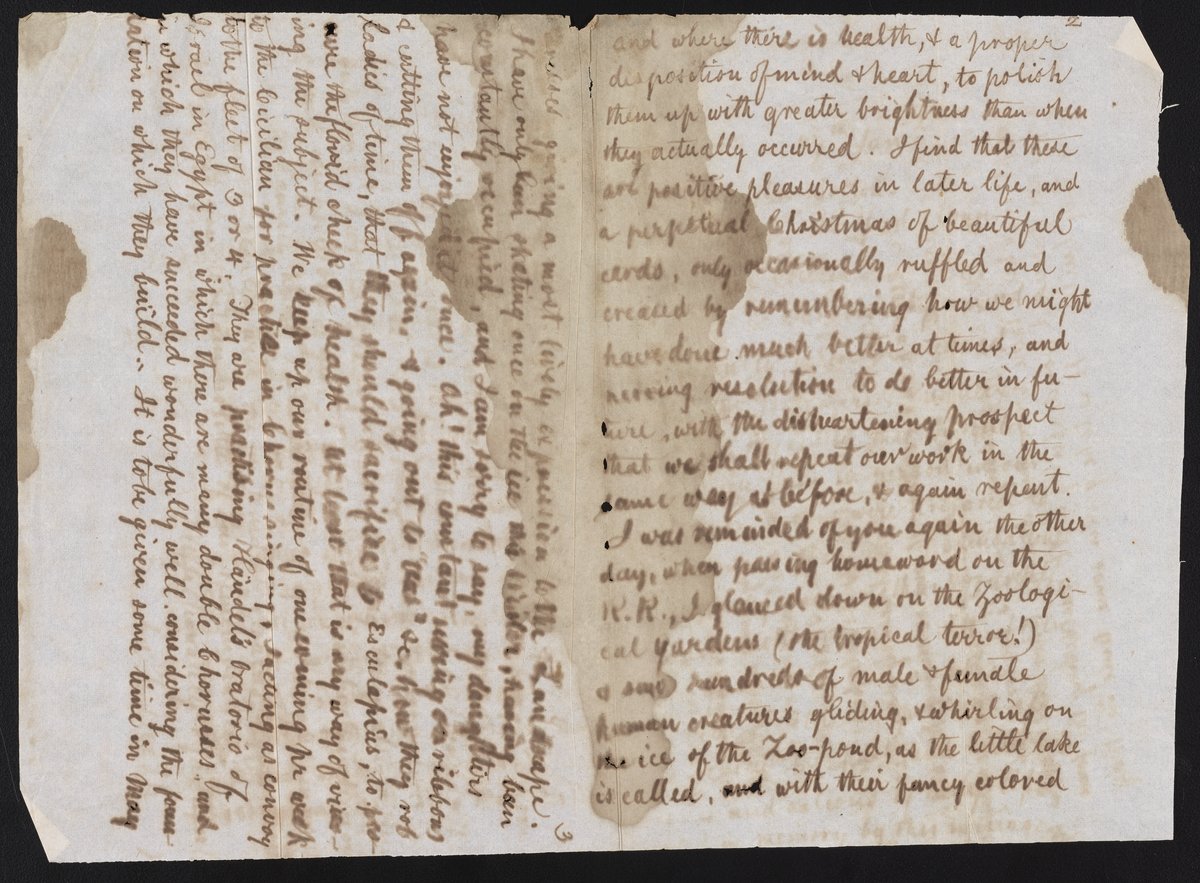 2
and where there is health, & a proper
disposition of mind & heart, to polish
them up with greater brightness than when
they actually occurred. I find that these
are positive pleasures in later life, and
a perpetual Christmas of beautiful
cards, only occasionally ruffled and
creased by remembering how we might
have done much better at times, and
nerving resolution to do better in fu-
ture, with the disheartening prospect
that we shall repeat our work in the
same way as before, & again repent.
I was reminded of you again the other
day, when passing homeward on the
R.R., I glanced down on the Zoologi-
cal Gardens (the tropical terror!)
& saw hundreds of male & female
human creatures gliding, & whirling on
the ice of the Zoo-pond, as the little lake
is called, and with their fancy colored
3
giving a most lively expression to the Landscape.
I have only been skating once on the ice this winter, having been
constantly occupied, and I am sorry to say, my daughters
have not enjoyed it once. Ah! this constant using of ribbons
& cutting them off again, & going out to "teas" &c, how they rob
Ladies of time, that they should sacrifice to Esculapius, to pro-
cure the florid cheek of health. at least that is my way of view-
ing the subject. We keep up our routine of one evening pr week
to the Civilean for practice in Chorus singing, I acting as convoy
to the fleet of 3 or 4. They are practising Händel's oratorio of
Israel in Egypt in which there are many double Choruses, and
in which they have succeeded wonderfully well, considering the foun-
dation on which they build. It is to be given some time in May